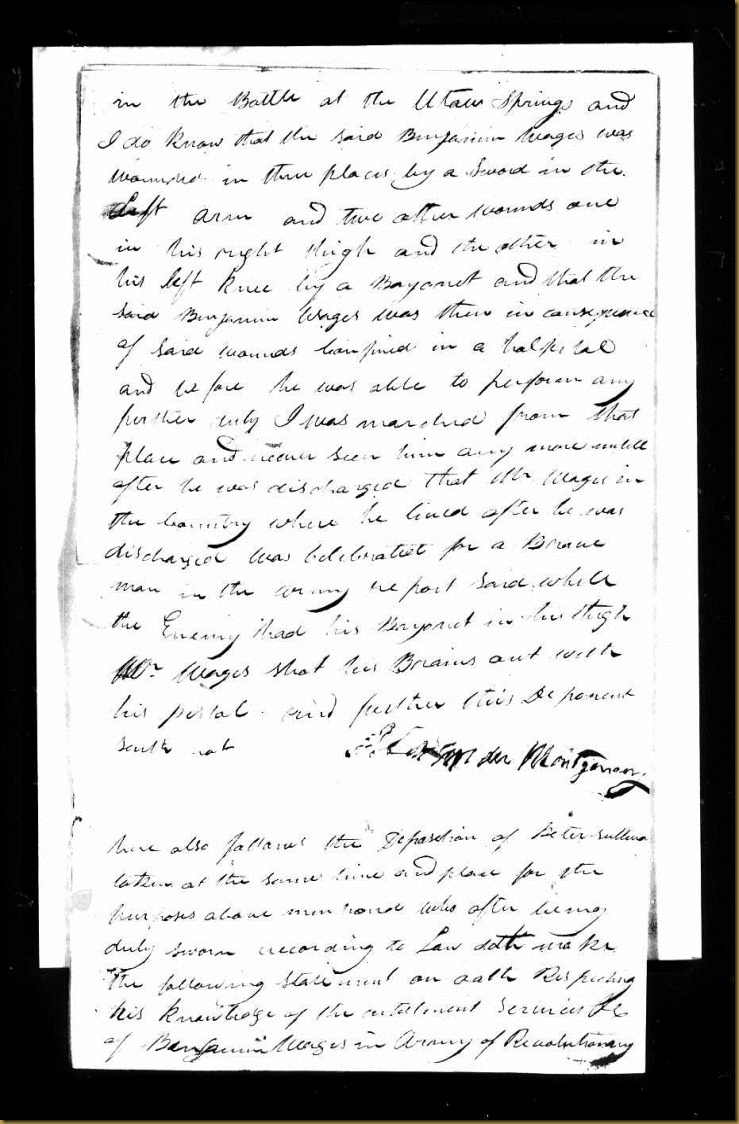 in the Battle at the Utaw Springs and
I do know that the said Benjamin Wages was
wounded in three places by a Sword in the
left arm and two other wounds one
in his right thigh and the other in
his left knee by a Bayonet and that the
said Benjamin Wages was then in consequence
of said wounds confined in a halspital
and before he was able to perform any
further duty I was marched from that
place and never seen him any more untill
after he was discharged that Mr Wages in
the Country where he lived after he was
discharged was Celebrated for a Brave
man in the army report said while
the Enemy had his Bayonet in his thigh
Mr. Wages shot his Brains out with
his pistal and further this Deponent
saith not Alexander Montgomery
here also follows the Deposition of Peter
taken at the same time and place for the
purposes above mentioned who after being
duly sworn according to Law doth make
the following Statement on oath Respecting
his knowledge of the enlistment Services &c
of Benjamin Wages in Army of Revolutionary